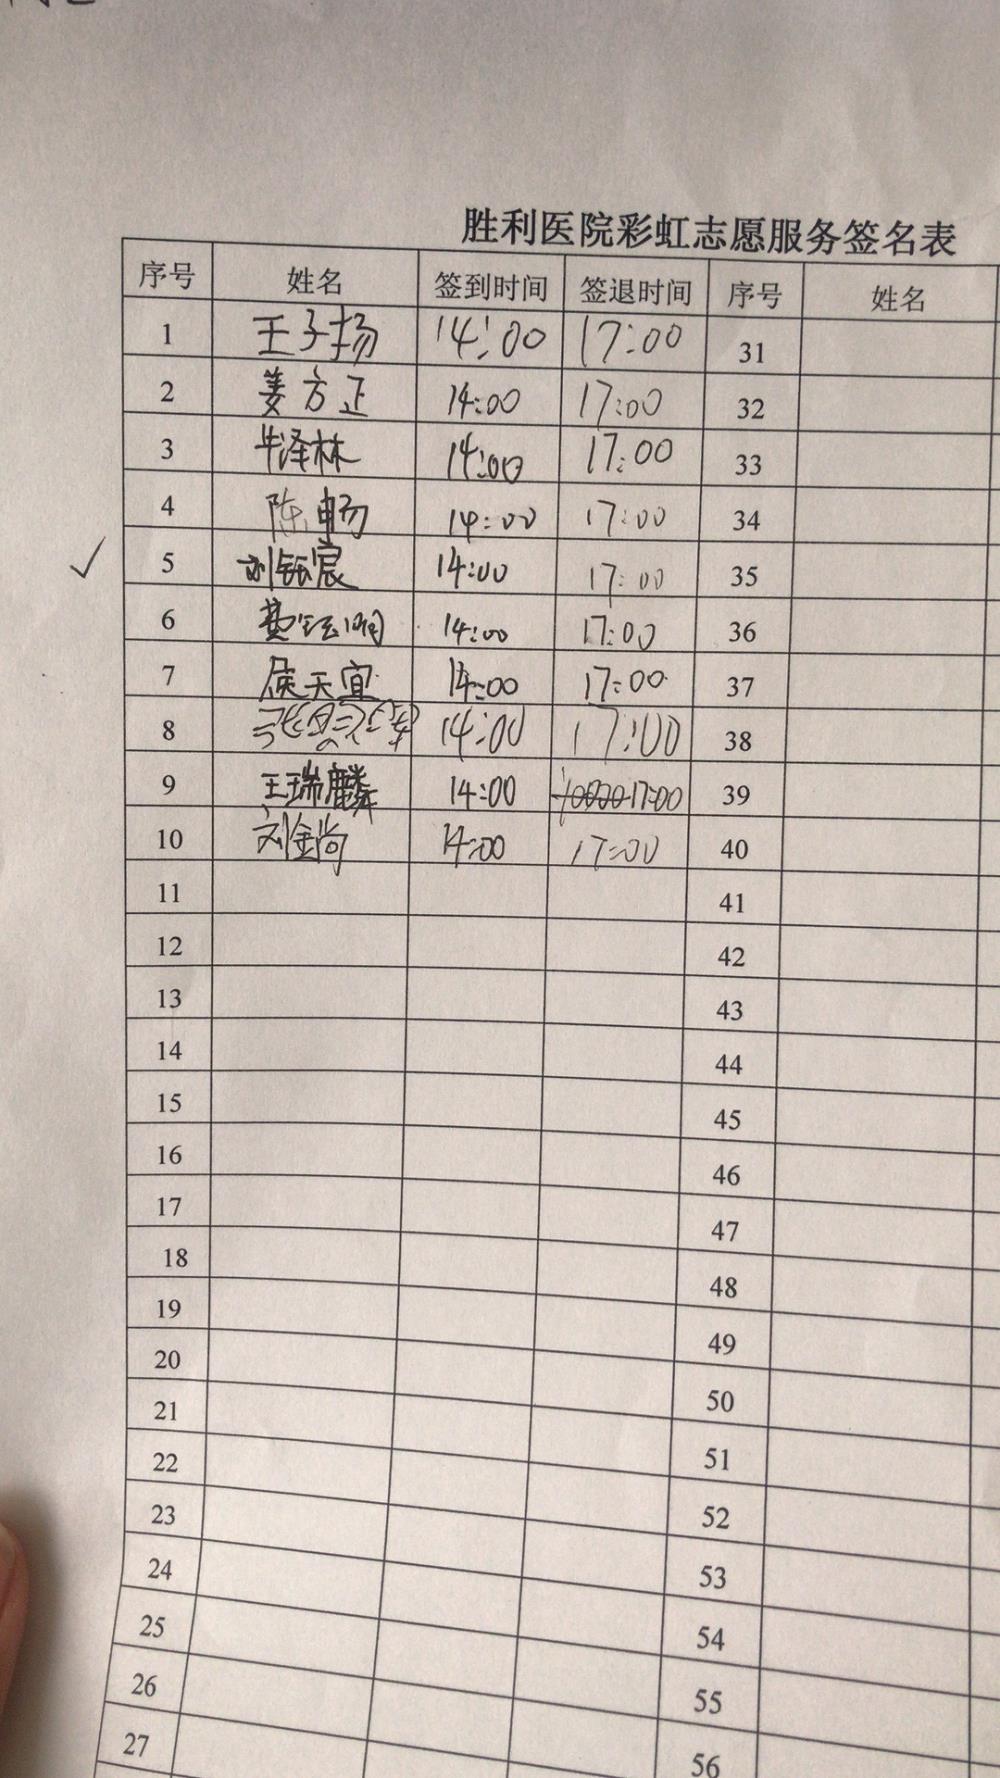 胜利医院彩虹志愿服务签名表
序号 姓名 签到时间 签退时间 序号 姓名
1 王子扬 14:00 17:00 31
2 姜方正 14:00 17:00 32
3 牛泽林 14:00 17:00 33
4 陈畅 14:00 17:00 34
5 刘钰宸 14:00 17:00 35
6 费 14:00 17:00 36
7 侯天宜 14:00 17:00 37
8 14:00 17:00 38
9 王瑞麟 14:00 17:00 39
10 刘金尚 14:00 17:00 40
11 41
12 42
13 43
14 44
15 45
16 46
17 47
18 48
19 49
20 50
21 51
22 52
23 53
24 54
25 55
26 56
27